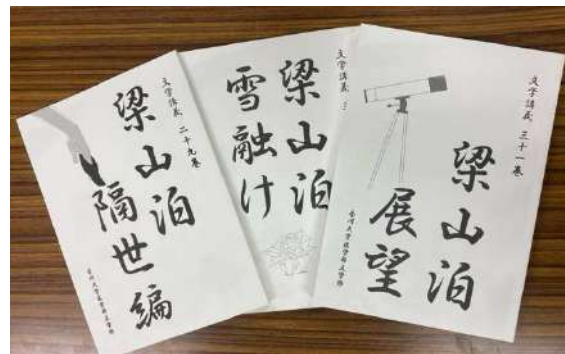 文字講義 二十九巻
梁山泊
隔世編
文字講義 三
梁山泊
雪融け
文字講義 三十一巻
梁山泊
展望